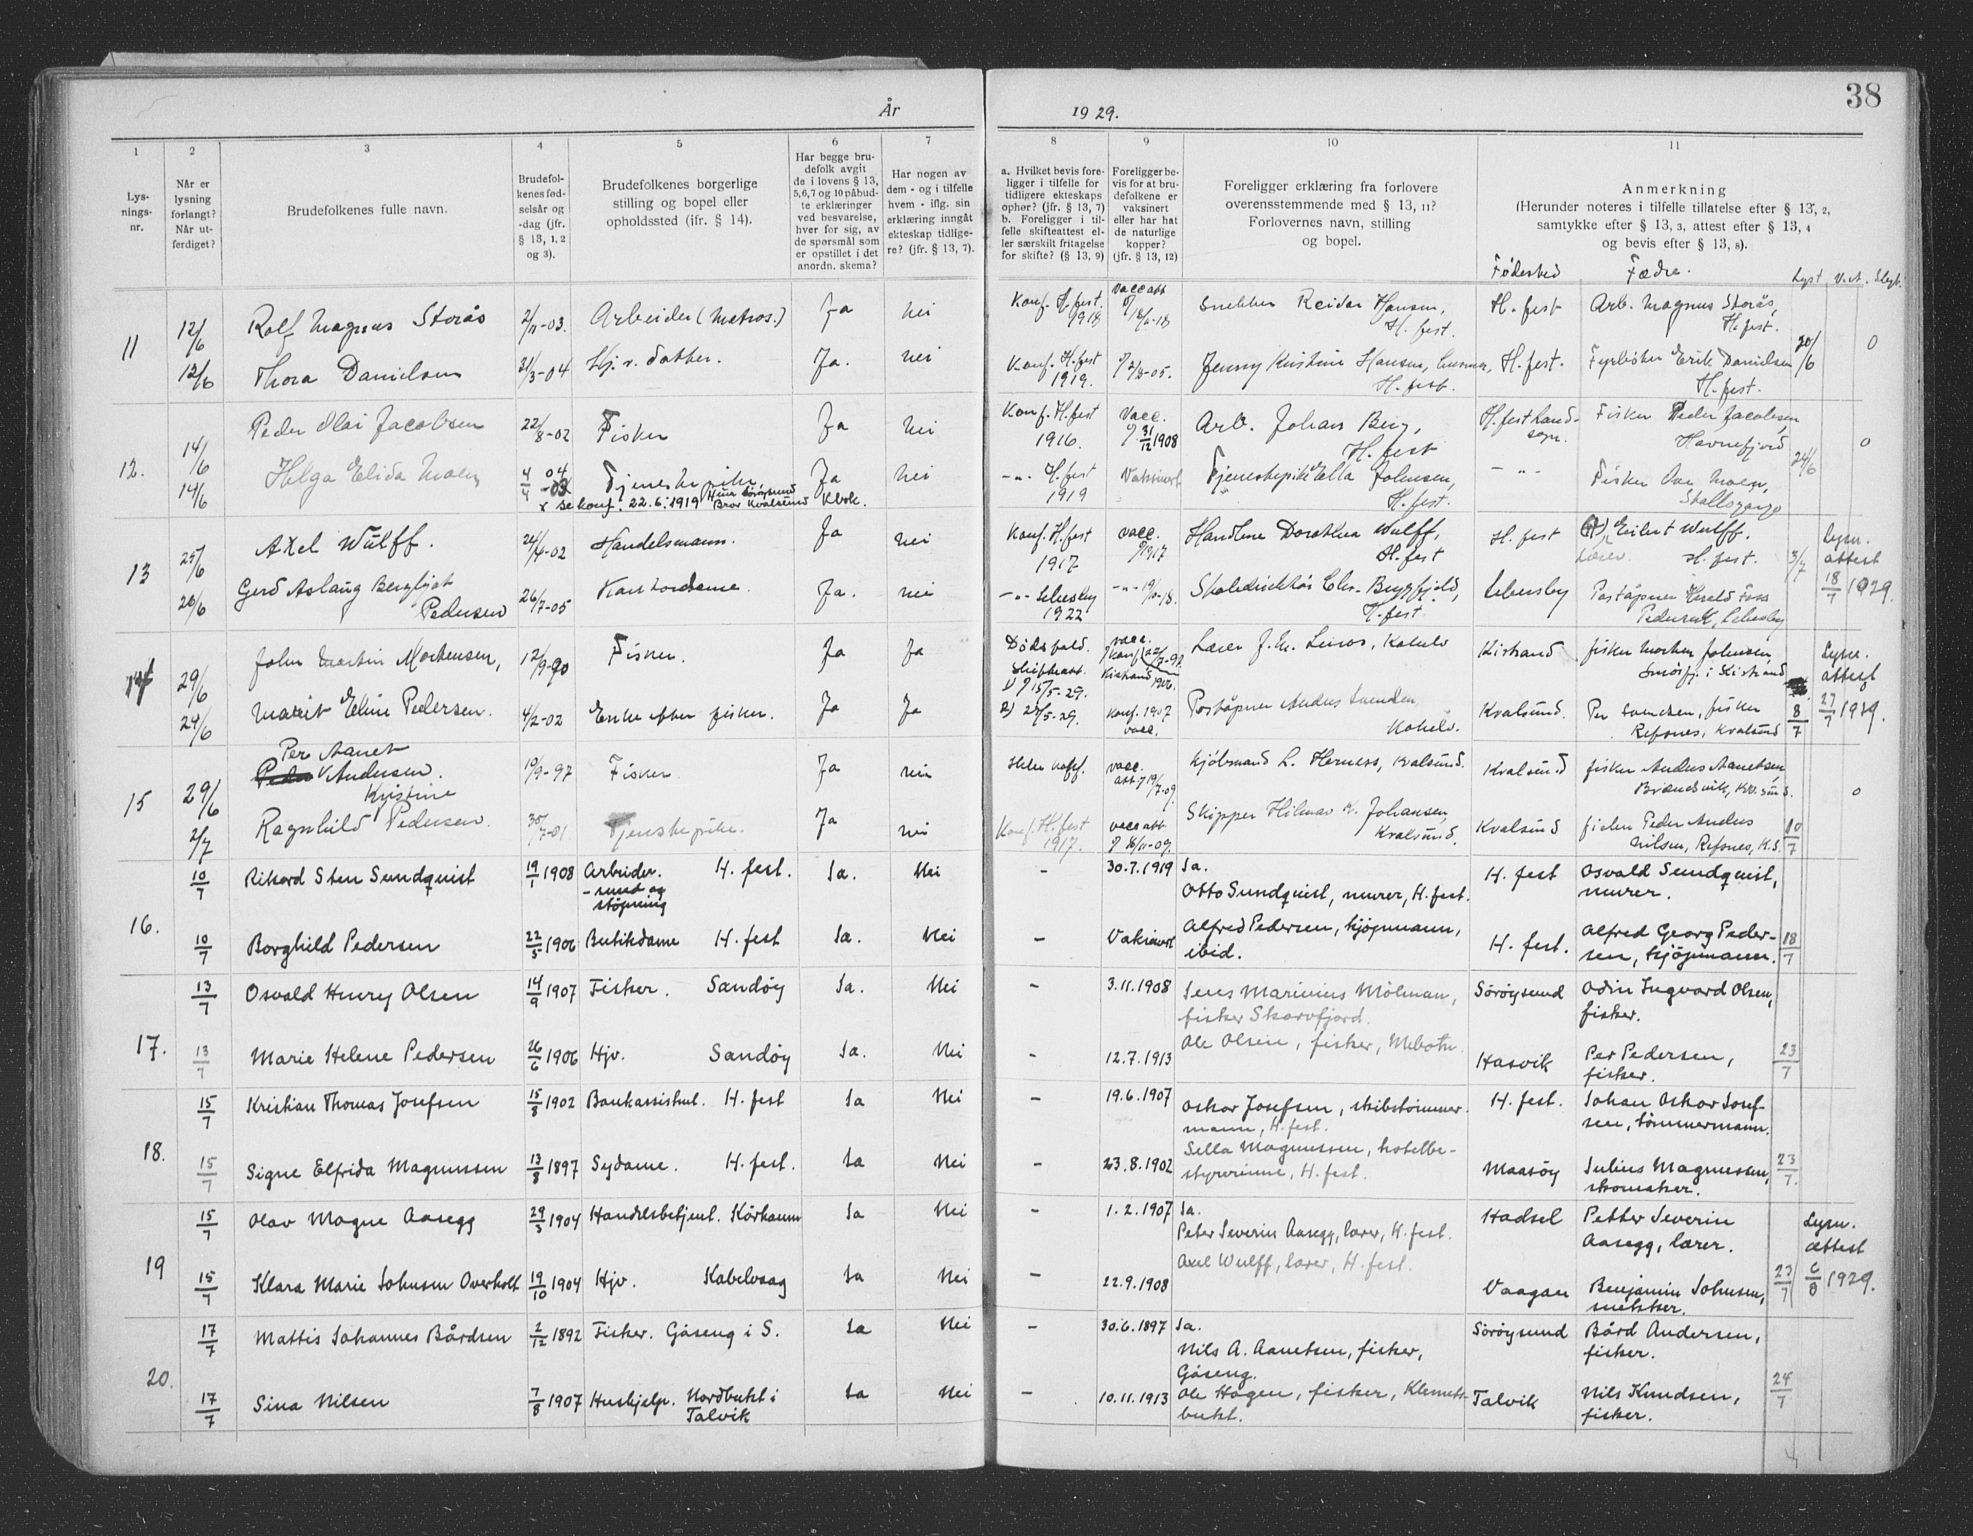 38
År 1929.
1 2 3 4 5 6 7 8 9 10 11
Lysningsnr.
Når er lysning forlangt? Når utferdiget?
Brudefolkenes fulle navn.
Brudefolkenes fødselsår og -dag (jfr. § 13, 1, 2 og 3).
Brudefolkenes borgerlige stilling og bopel eller opholdssted (ifr. § 14).
Har begge brudefolk avgit de i lovens § 13, 5,6,7 og 10 påbudte erklæringer ved besvarelse, hver for sig, av de spørsmål som er opstillet i det anordn. skema?
Har nogen av dem - og i tilfelle hvem - iflg. sin erklæring inngåt ekteskap tidligere? (jfr. § 13, 7).
a. Hvilket bevis foreligger i tilfelle for tidligere ekteskaps ophør? (jfr. § 13, 7) b. Foreligger i tilfelle skifteattest eller særskilt fritagelse for skifte? (§ 13, 9)
Foreligger bevis for at brudefolkene er vaksinert eller har hat de naturlige kopper? (jfr. § 13, 12)
Foreligger erklæring fra forlovere overensstemmende med § 13, 11? Forlovernes navn, stilling og bopel.
Anmerkning (Herunder noteres i tilfelle tillatelse efter § 13, 2, samtykke efter § 13, 3, attest efter § 13, 4 og bevis efter § 13, 8).
Fødested Fædre. Lyst V.att.
11 12/6 Rolf Magnus Storås 2/11-03. Arbeider (Matros.) Ja Nei Konf. H.fest. 1918 Vacc att Snekker Reidar Hansen, H. fest. H. fest Arb. Magnus Storås, H. fest.
12/6 Thora Danielsen 21/3-04 Hj.v. datter. Ja. Nei Konf. H.fest 1919. Jenny Kristine Hansen, H. fest. H. fest. Fyrbøter Erik Danielsen H. fest. 20/6 0
12. 14/6 Peder Olai Jacobsen 22/8-02 Fisker Ja Nei Konf. H.fest 1916. Vacc. 31/12 1908 Arb. Johan Berg, H. fest H. fest landsogn. Fisker Peder Jacobsen, Havnefjord 0
14/6 Helga Elida Moen 4/4 04 Tjenestepike, Ja Nei -"- H. fest 1919 Vaksinert Tjenestepike Ella Johnsen, H. fest. -"- Fisker Moen, 24/6
x se konf. 22.6.1919 Bror Kvalsund Klok.
13 25/6 Axel Wulff. 24/4-02 Handelsmann. Ja Nei Konf. H.fest 1917 vacc. 1917 Handlene Dorothea Wulff, H. fest H. fest Eilert Wulff. Lærer H. fest. Lysn. attest
26/6 Gerd Aslaug Bergljot Pedersen 26/7-05 Kontordame. Ja. Nei -"- Lebesby 1922 Skoledirektør Chr. Bergfjeld, H. fest. Lebesby Poståpner Harald Foss Pedersen, Lebesby 3/7 18/7 1929.
14 29/6 John Martin Mortensen, 12/9-90 Fisker. Ja Ja Dødsfald. Skifteatt. 1) 15/5-29. vacc. Kistrand Lærer J. M. Kokelv Kistrand fisker Morten Johnsen, Smørfj. i Kistrand Lysn. attest
29/6 Marit Eline Pedersen. 4/2-02 Enke efter fisker. Ja Ja 2) 27/5-29. Konf. 1907 vacc. Poståpner Anders Svendsen Kokelv. Kvalsund. Per Svendsen, fisker Refsnes, Kvalsund 8/7 27/7 1929.
15 29/6 Per Aanet Andersen. 10/9-97 Fisker Ja nei vacc. att. 19/7-09. Kjøbmand L. Herness, Kvalsund. Kvalsund fisker Anders Aanetsen, Kv.sund.
2/7 Ragnhild Kristine Pedersen. 30/7-01. Tjenestepike. Ja nei Konf. H. fest 1917. vacc att Skipper Hilmar K. Johansen, Kvalsund. Kvalsund fisker Peder Anders Nilsen, Refsnes, K.S. 10/7 0
16. 10/7 Rikard Sten Sundquist 19/1 1908 Arbeider. H. fest. - mud og støpning Ja. Nei - 30.7.1919 Ja. Otto Sundquist, murer, H. fest. H. fest Osvald Sundquist, murer.
10/7 Borghild Pedersen 22/5 1906 Butikdame H. fest Ja. Nei - Vaksinert Alfred Pedersen, kjøpmann, ibid. H. fest. Alfred Georg Pedersen, kjøpmann. 18/7
17. 13/7 Osvald Henry Olsen 14/9 1907 Fisker. Sandøy Ja. Nei - 3.11.1908 Jens Marinius Mölman, fisker Skarvfjord. Sörøysund Odin Ingvard Olsen, fisker.
13/7 Marie Helene Pedersen 26/6 1906 Hjv. Sandøy Ja. Nei - 12.7.1913 Ole Olsen, fisker, Mebotn Hasvik Per Pedersen, fisker. 23/7
18. 15/7 Kristian Thomas Josefsen 15/8 1902 Bankassistent. H. fest Ja Nei - 19.6.1907 Oskar Josefsen, skibstømmermann, H. fest. H. fest. Johan Oskar Josefsen, tømmermann.
15/7 Signe Elfrida Magnussen 13/8 1897 Sydame. H. fest. Ja Nei - 23.8.1902 Sella Magnussen, hotelbestyrerinne, H. fest. Maasøy Julius Magnussen, skomaker. 23/7.
19 15/7 Olav Magne Aasegg 29/3 1904 Handelsbetjent. Kårhamn Ja Nei - 1.2.1907 Ja. Peter Severin Aasegg, lærer, H. fest. Hadsel Petter Severin Aasegg, lærer. Lysn. attest
15/7 Klara Marie Johnsen Overholt 19/10 1904 Hjv. Kabelvaag Ja Nei - 22.9.1908 Axel Wulff, lærer, H. fest. Vaagan Benjamin Johnsen, snekker. 23/7 6/8 1929.
20. 17/7 Mattis Johannes Bårdsen 2/12 1892 Fisker. Gåseng i S. Ja Nei - 30.6.1897 Ja. Nils A. Aanetsen, fisker, Gåseng. Sörøysund Bård Andersen, fisker.
17/7 Sina Nilsen 7/8 1907 Hushjelp. Nordbukt i Talvik Ja Nei - 10.11.1913 Ole Hagen, fisker, Klemetsbukt. Talvik Nils Knudsen, fisker. 24/7